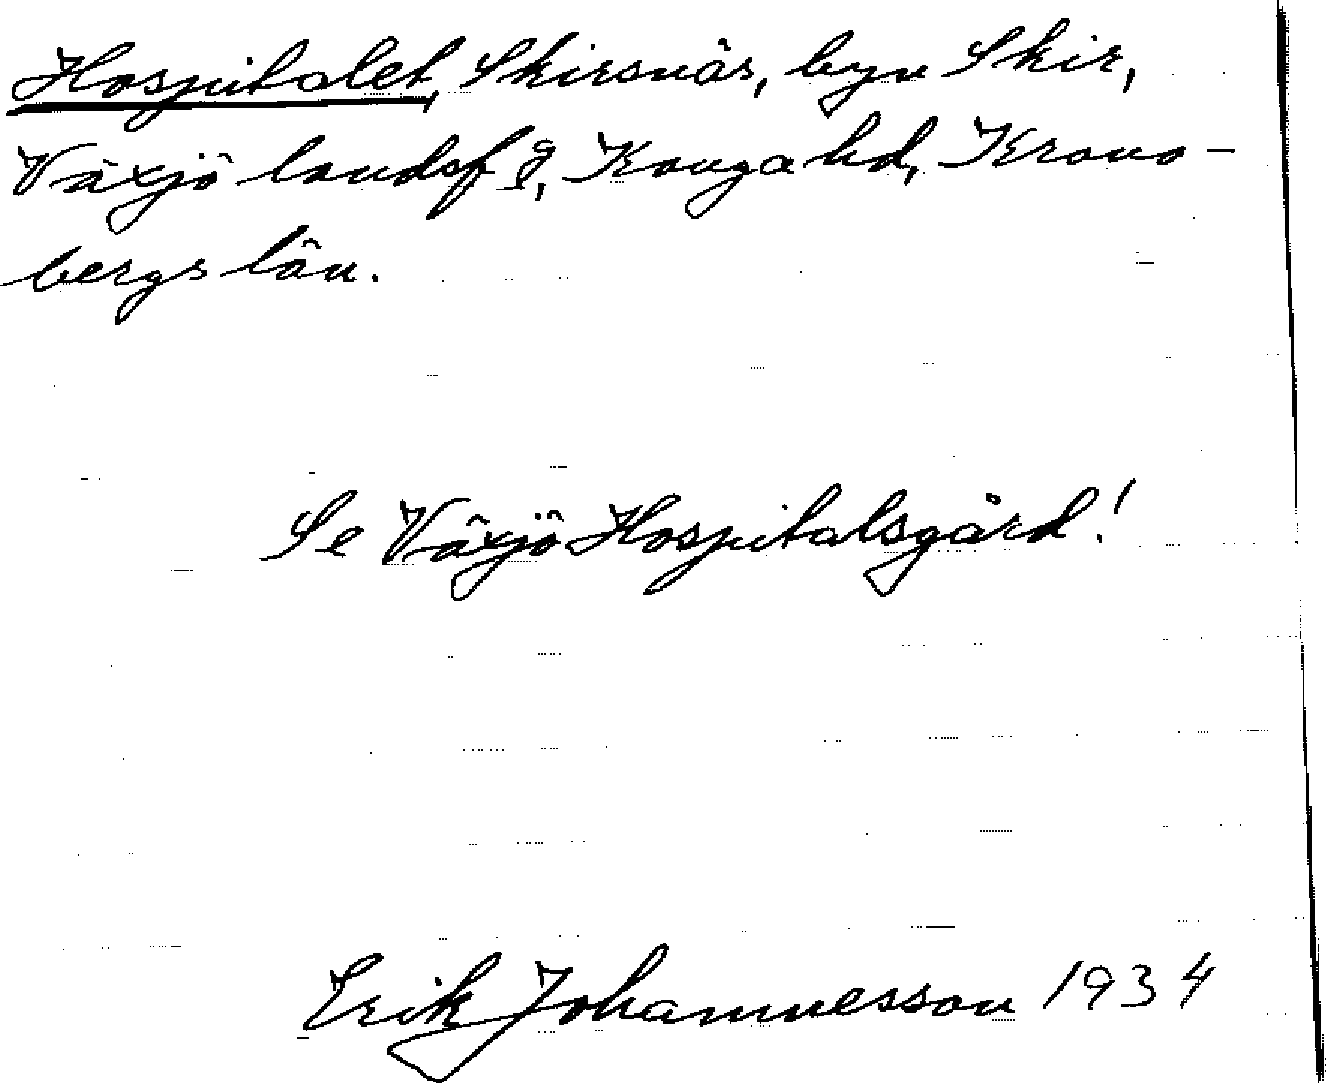 Hospitalet, Skirsnäs, byn Skir,
Växjö landsf g, Konga hd, Krono-
bergs län.
Se Växjö Hospitalsgård!
Erik Johannesson 1934